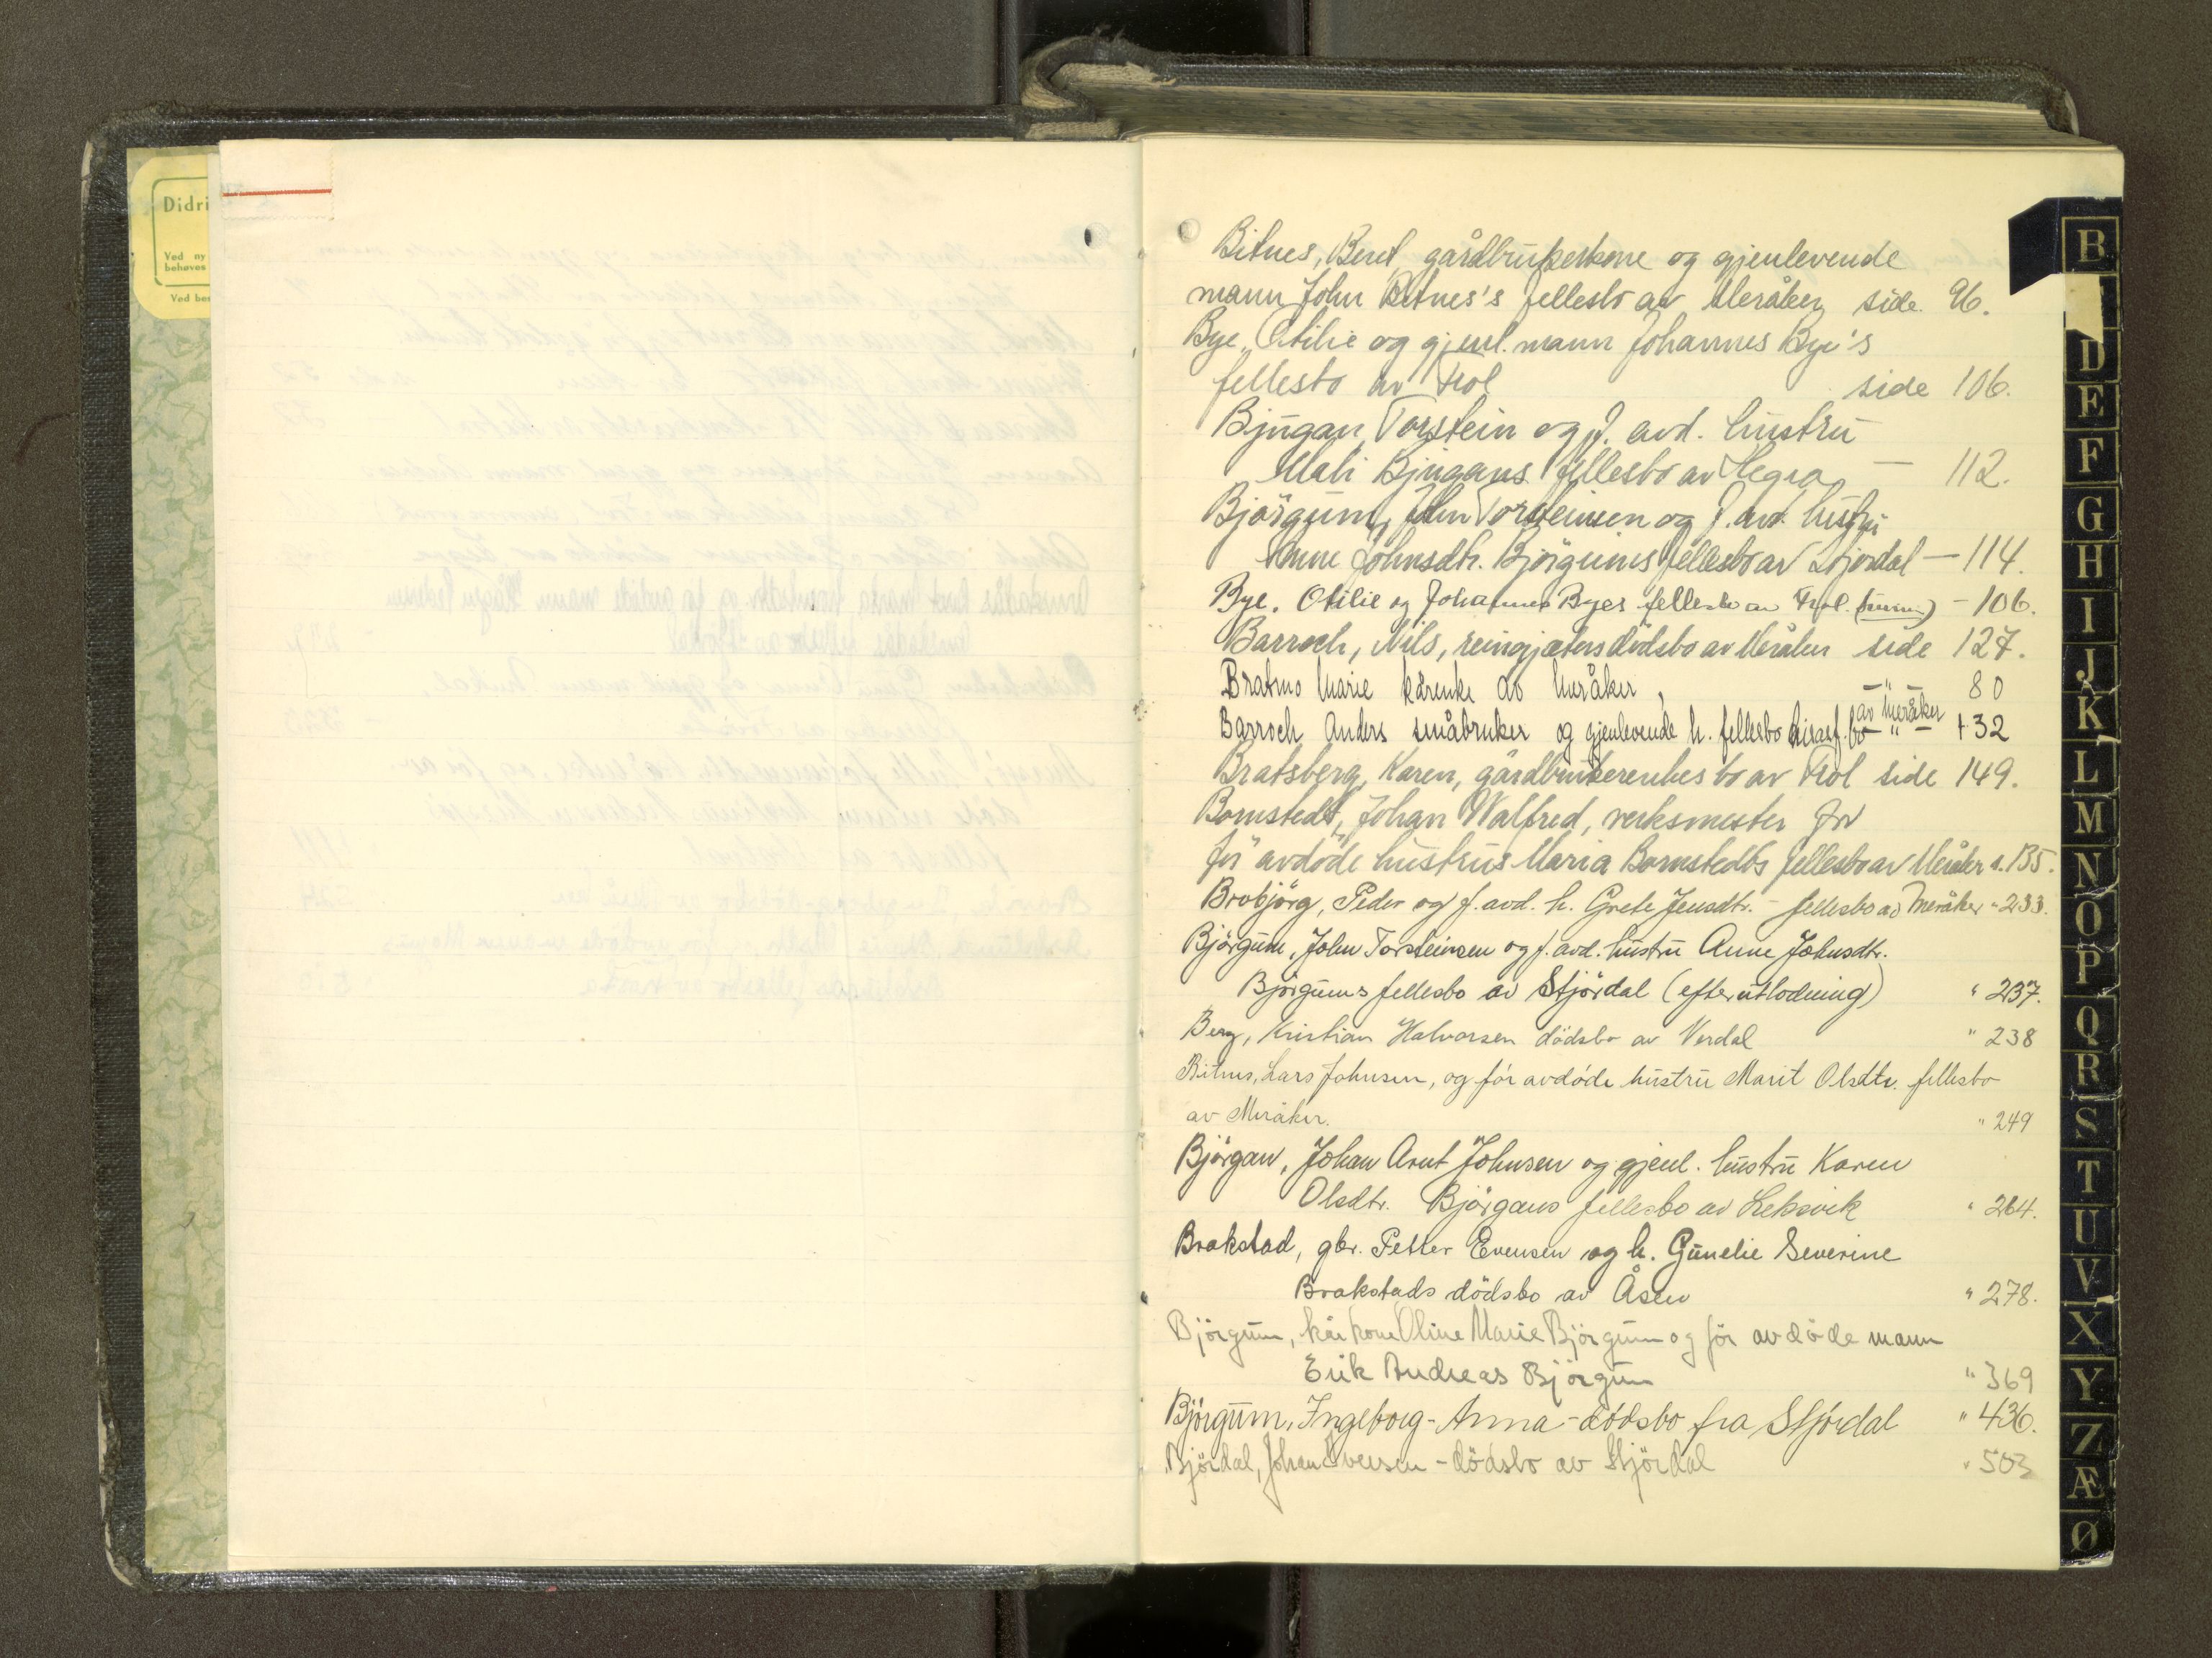 Didri
Ved ny
behøves
Ved be
Bitnes, Beret, gårdbrukerkone og gjenlevende
mann John Bitnes's fellesbo av Meråker side 96.
Bye, Otilie og gjenl. mann Johannes Bye's
fellesbo av Frol side 106.
Bjugan Torstein og f. avd. hustru
Mali Bjugans fellesbo av Hegra — 112.
Björgum, John Torsteinsen og f. avd. hustru
Anne Johnsdtr. Björgums fellesbo av Stjørdal — 114.
Bye. Otilie og Johannes Byes fellesbo av Frol. - 106.
Barroch, Nils, reingjeters dødsbo av Meråker side 127.
Bratmo Marie kårenke av Meråker, — " — 80
Barroch Anders småbruker og gjenlevende h. fellesbo av Meråker — " — 132
Bratsberg, Karen, gårdbrukerenkes bo av Frol side 149.
Bornstedt, Johan Walfred, verksmester og
før avdøde hustrus Maria Bornstedts fellesbo av Meråker s. 135.
Brobjörg, Peder og f. avd. h. Grete Jensdtr. - fellesbo av Meråker " 233.
Björgum, John Torsteinsen og f. avd. hustru Anne Johnsdtr.
Björgums fellesbo av Stjördal (efter utlodning) " 237.
Berg, Kristian Halvorsen dödsbo av Verdal " 238
Bitnes, Lars Johnsen, og før avdøde hustru Marit Olsdtr. fellesbo
av Meråker. " 249
Björgan, Johan Arnt Johnsen og gjenl. hustru Karen
Olsdtr. Björgans fellesbo av Leksvik " 264.
Brakstad, gbr. Petter Evensen og h. Gunelie Severine
Brakstads dödsbo av Åsen " 278.
Björgum, kårkone Oline Marie Björgum og för avdöde mann
Erik Andreas Björgum " 369
Bjørgum, Ingeborg-Anna - dødsbo fra Stjørdal " 436.
Björdal, Johan Iversen - dödsbo av Stjördal " 503
B
D
E
F
G
H
I
J
K
L
M
N
O
P
Q
R
S
T
U
V
X
Y
Z
Æ
Ø